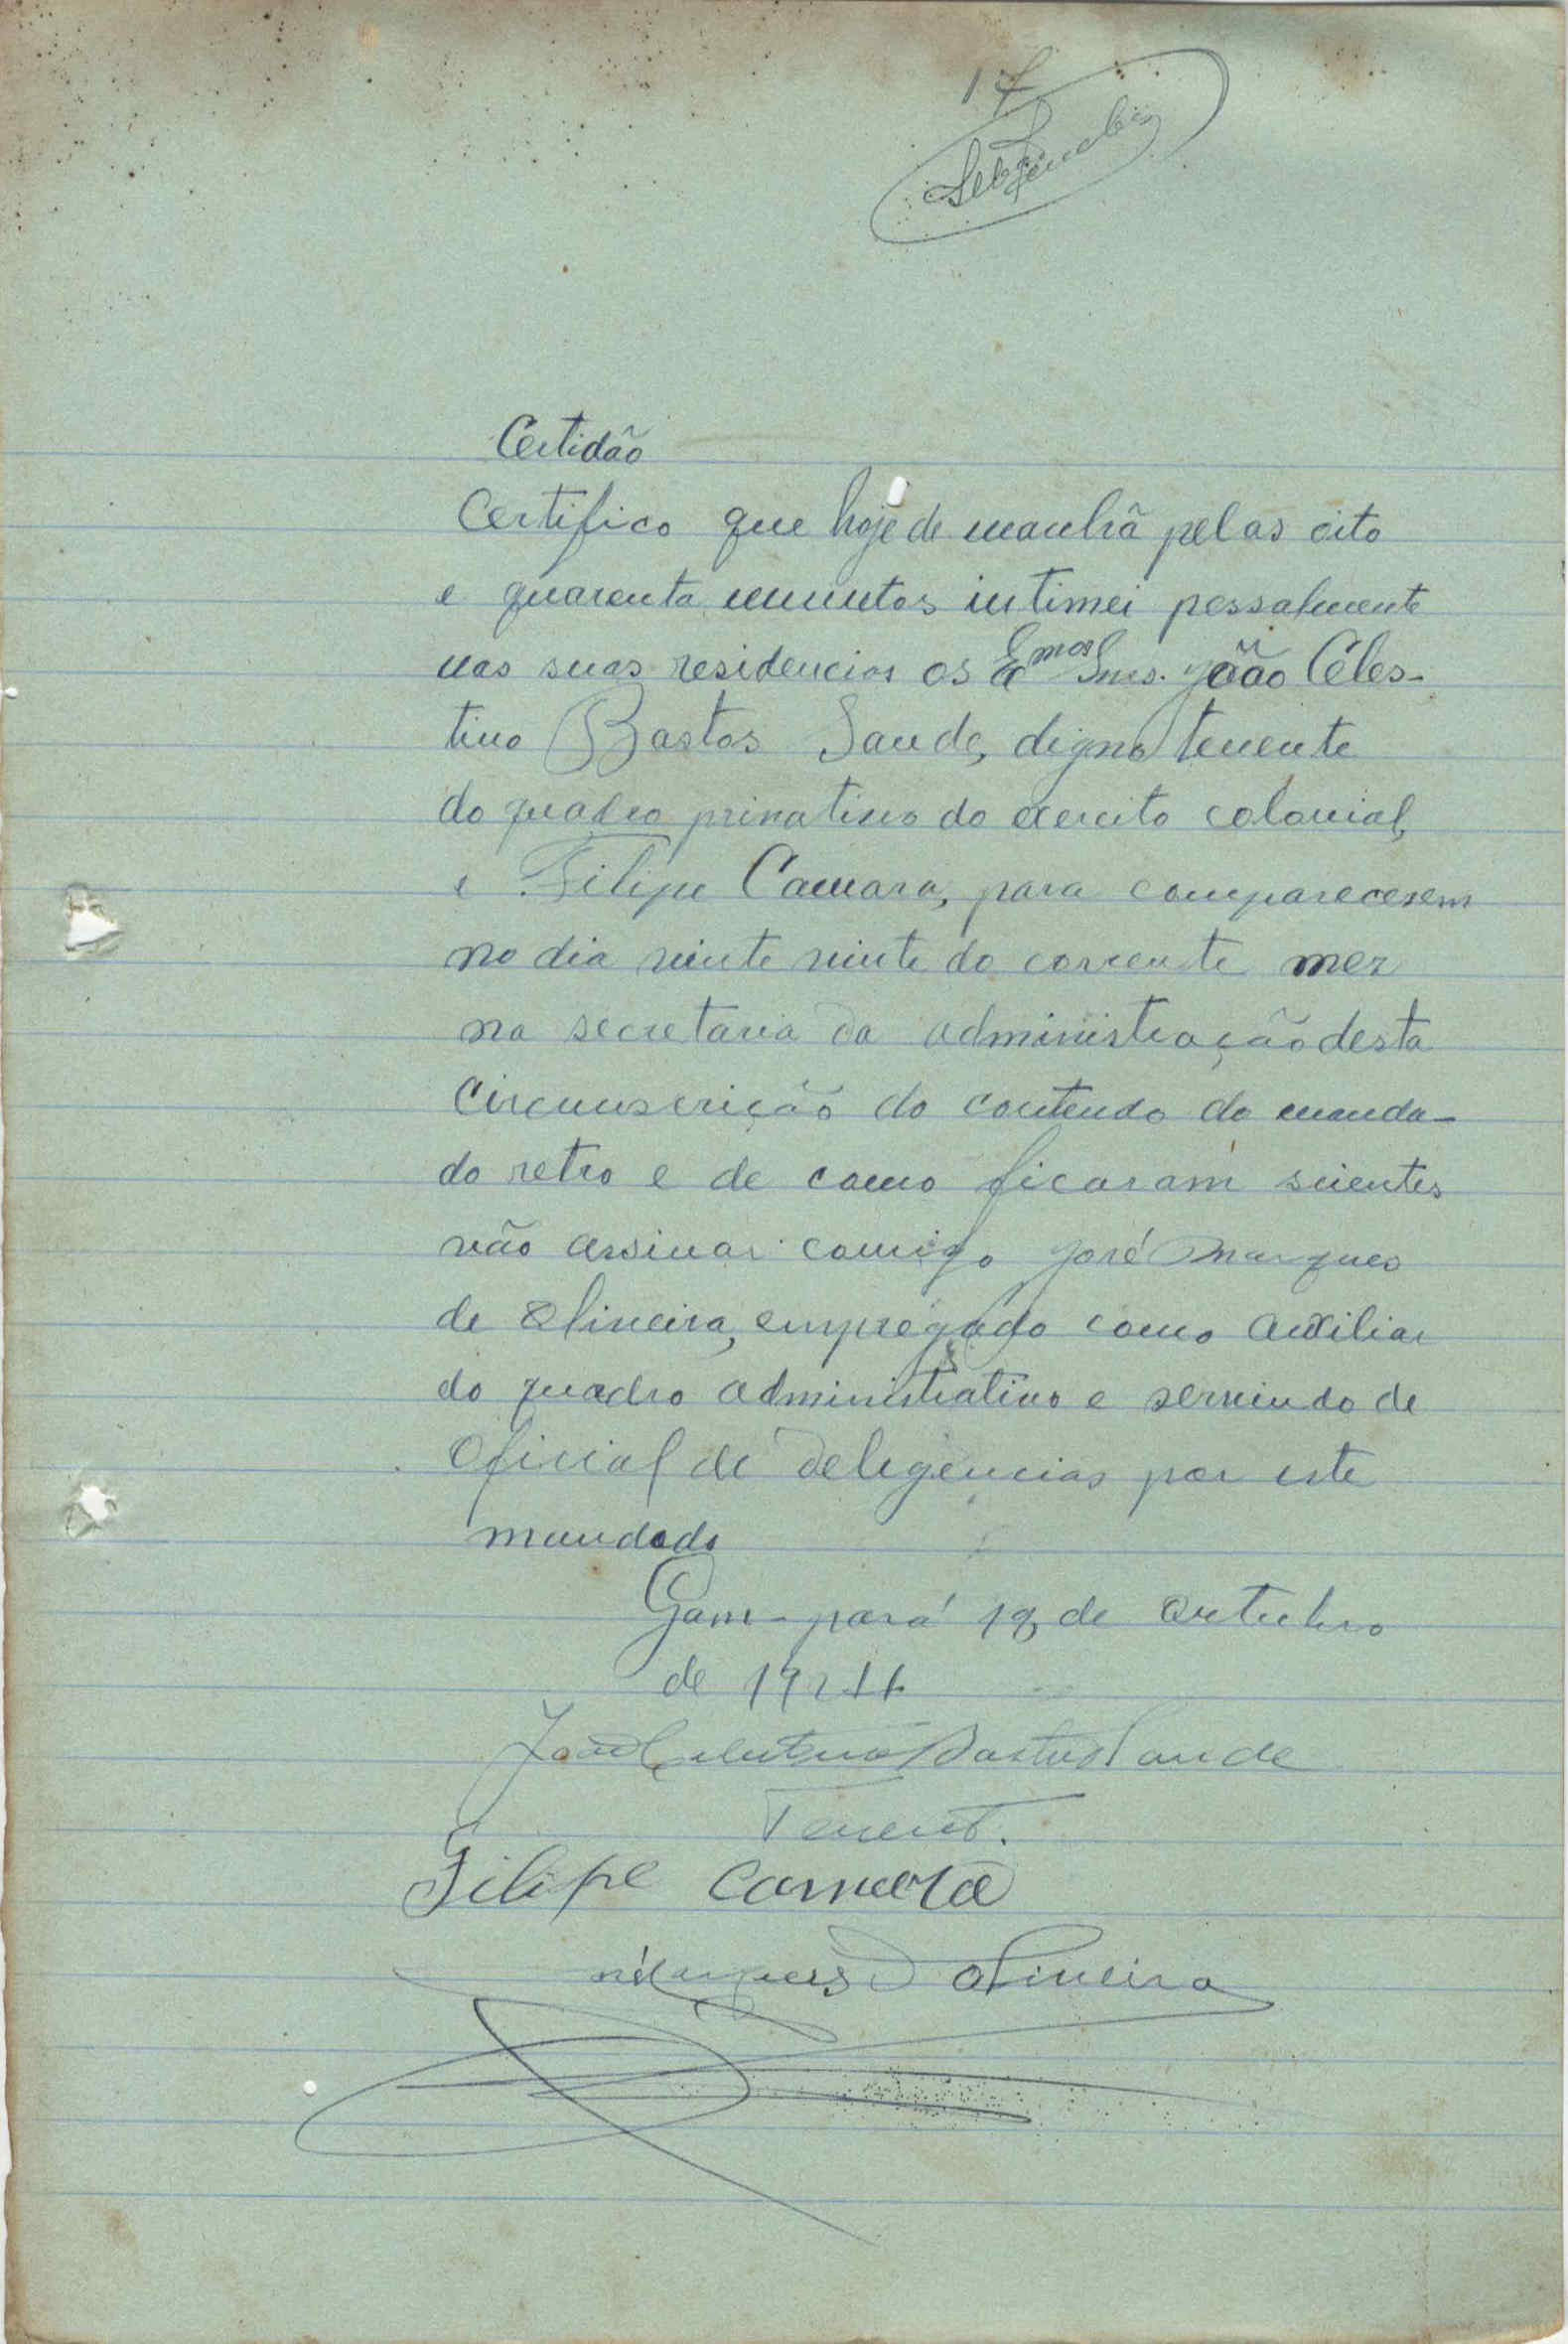 17
Certidão
Certifico que hoje de manhã pelas oito
e quarenta minutos intimei pessalmente
nas suas residencias os Exmos Snrs. João Celes-
tino Bastos Saude, digno tenente
do quadro privativo do exercito colonial,
e Filipe Camara, para comparecerem
no dia vinte vinte do corrente mez
na secretaria da administração desta
Circunscrição do conteudo do manda-
do retro e de como ficaram scientes
vão assinar comigo José Marques
de Oliveira, empregado como auxiliar
do quadro administrativo e servindo de
Oficial de deligencias por este
mandado
Gam-pará 19 de Outubro
de 19
João Celestino Bastos Saude
Tenente.
Filipe Camara
Marques d'Oliveira